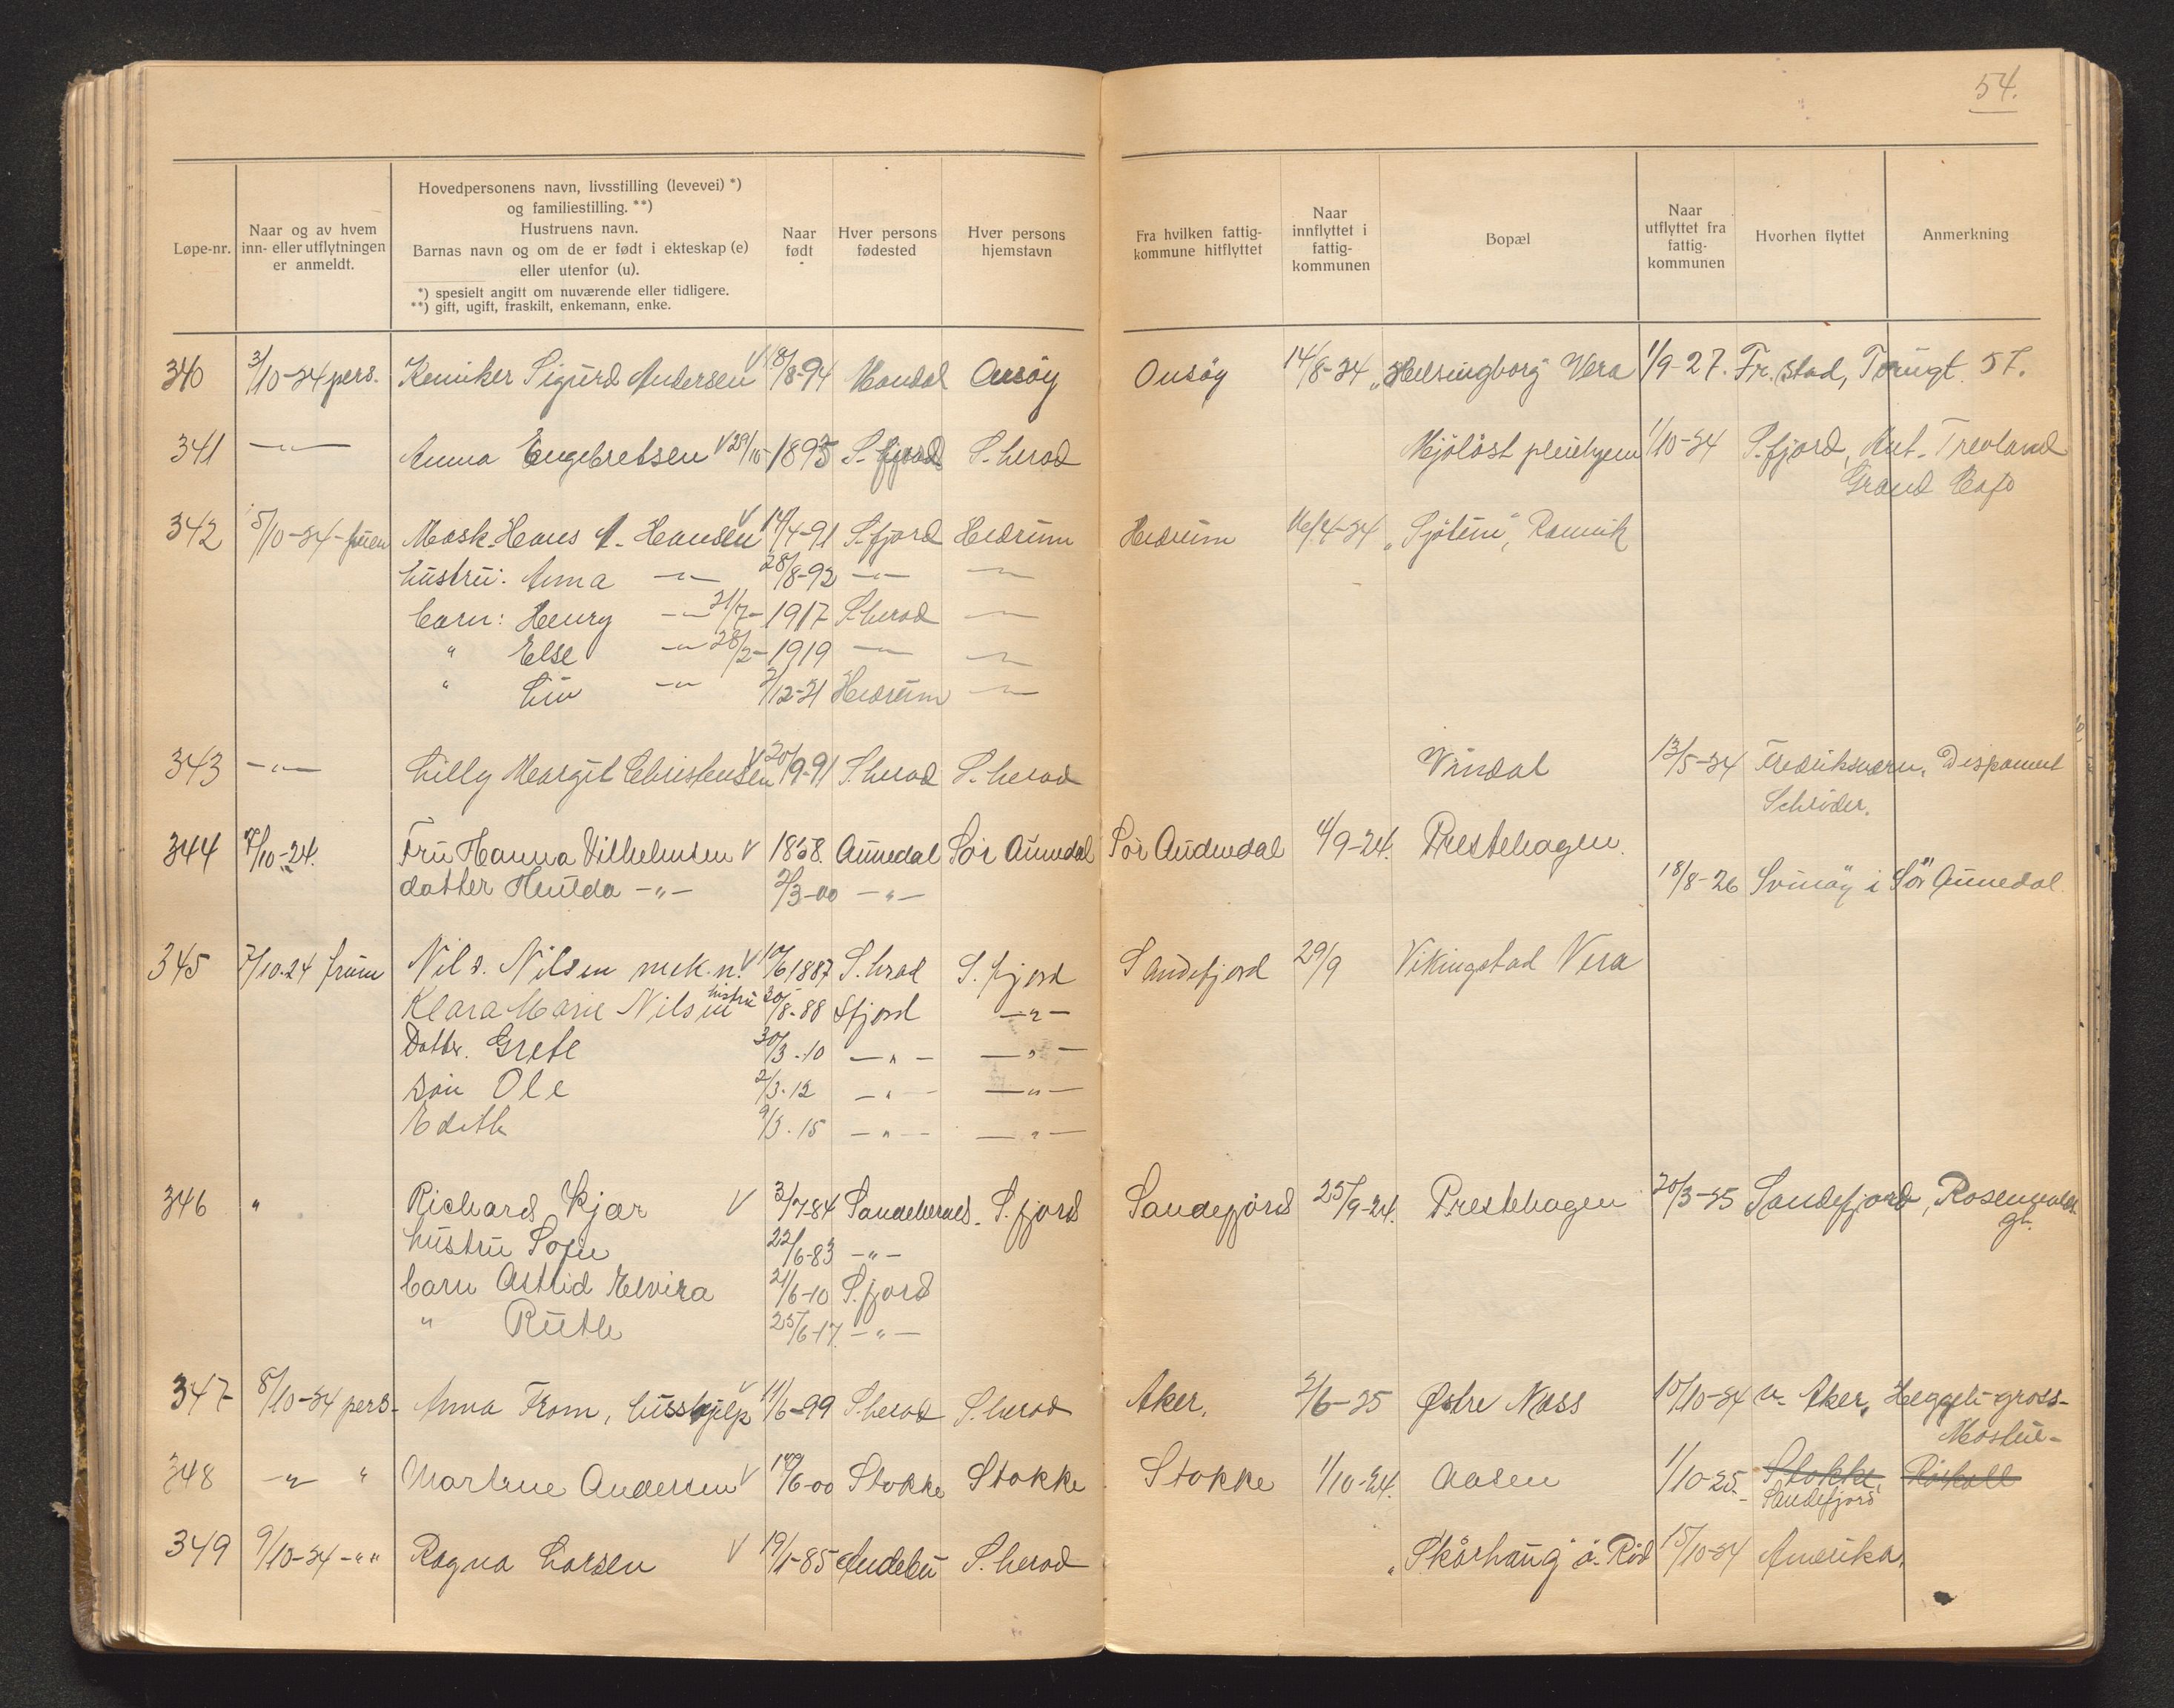 54.
Løpe-nr.
Naar og av hvem
inn- eller utflytningen
er anmeldt.
Hovedpersonens navn, livsstilling (levevei) *)
og familiestilling. **)
Hustruens navn.
Barnas navn og om de er født i ekteskap (e)
eller utenfor (u).
*) spesielt angitt om nuværende eller tidligere.
**) gift, ugift, fraskilt, enkemann, enke.
Naar
født
Hver persons
fødested
Hver persons
hjemstavn
Fra hvilken fattig-
kommune hitflyttet
Naar
innflyttet i
fattig-
kommunen
Bopæl
Naar
utflyttet fra
fattig-
kommunen
Hvorhen flyttet
Anmerkning
340 3/10-24 pers. Kemiker Sigurd Andersen V 18/8-94 Mandal Onsöy Onsöy 14/8-24 „Helsingborg" Vera 1/9-27. Fr.stad, 57.
341 -„- Anna Engebretsen V 29/10-1895 S.fjord S.herad Mjölöst pleiehjem 1/10-24 S.fjord, Ant. Trevland
Grand Cafe
342 5/10-24- fruen Mask. Hans A. Hansen V 14/4-91 S.fjord Hedrum Hedrum 16/4-24 „Sjötun", Ramvik
hustru: Anna -„- 28/8-92 -„- -„-
barn: Henry -„- 21/7-1917 S.herad -„-
" Else -„- 28/2-1919 -„- -„-
" Liv -„- 2/12-21 Hedrum -„-
343 -„- Lilly Margit Christensen V 20/9-91 S.herad S.herad Vindal 13/5-24 Fredriksværn, Disponent
Schröder.
344 7/10-24. Fru Hanna Vilhelmsen V 1858. Aunedal Sör Aunedal Sör Audnedal 4/9-24. Prestehagen.
datter Hulda -„- 2/3-00 -„- 18/8-26 Svinöy i Sör Aunedal.
345 7/10.24 fruen Nils. Nilsen mek.n. V 10/6 1887 S.hrad S.fjord Sandefjord 29/9 Vikingstad Vera
Klara Marie Nilsen hustru 20/8-88 Sfjord -„-
Datter. Grete 30/3-10 -„- -„-
sön Ole 2/3-12 -„- -„-
Edith 9/3-15 -„- -„-
346 " Richard Kjær V 3/7-84 Sandeherred. S.fjord Sandefjord 25/9-24. Prestehagen 20/3-25 Sandefjord, Rosenvolds
gt.
hustru Sofie 22/6-83 -„-
barn Astrid Elvira 21/6-10 S.fjord
" Ruth 25/6-17. -„-
347 8/10-24 pers- Anna From, hushjelp V 11/6-99 S.herad S.herad Aker. 2/6-25 Østre Nass 15/10-24 V. Aker, Heggeli-gross-
348 -„- " Martine Andersen V 149/6-00 Stokke Stokke Stokke 1/10-24. Aasen 1/10-25. Stokke,
Sandefjord
349 9/10-24 -„" Ragna Larsen V 19/1-85 Andebu S.herad „Skörhaug" ö. Röd 15/10-24 Amerika.